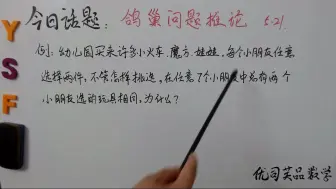 今日话题：鸽巢问题推论 5.21
Y
S
F
例：幼儿园买来许多小火车、魔方、娃娃，每个小朋友任意
选择两件，不管怎样挑选，在任意7个小朋友中总有两个
小朋友选的玩具相同，为什么？
优司芙品数学